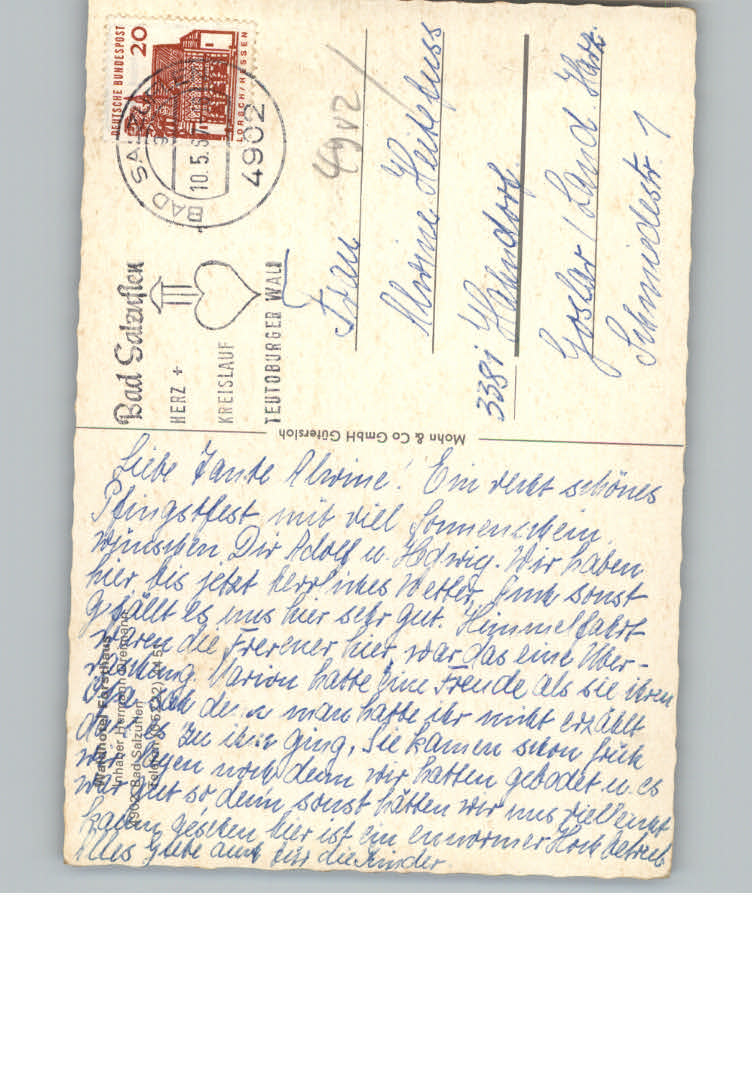 DEUTSCHE BUNDESPOST
20
LORSCH/HESSEN
BAD SALZ
10.5.6
4902
Bad Salzuflen
HERZ +
KREISLAUF
TEUTOBURGER WALD
4902
Frau
Alwine Heitefuss
3381 Hahndorf
Goslar / Land. Harz
Schmiedestr. 1
Mohn & Co GmbH Gütersloh
Liebe Tante Alwine! Ein recht schönes
Pfingstfest mit viel Sonnenschein
wünschen Dir Adolf u. Hedwig. Wir haben
hier bis jetzt herrliches Wetter, auch sonst
gefällt es uns hier sehr gut. Himmelfahrt
waren die Frerener hier, war das eine Über-
raschung. Marion hatte eine Freude als sie ihren
Opa sah denn man hatte ihr nicht erzählt
das es zu ging, Sie kamen schon früh
wir lagen noch denn wir hatten gebadet u. es
war gut so denn sonst hätten wir uns vielleicht
kaum gesehen hier ist ein ennormer Hochbetrieb
Alles gute auch für die Kinder.
Waldhotel Forsthaus
Inhaber Hermann
4902 Bad Salzuflen
Telefon (05222)